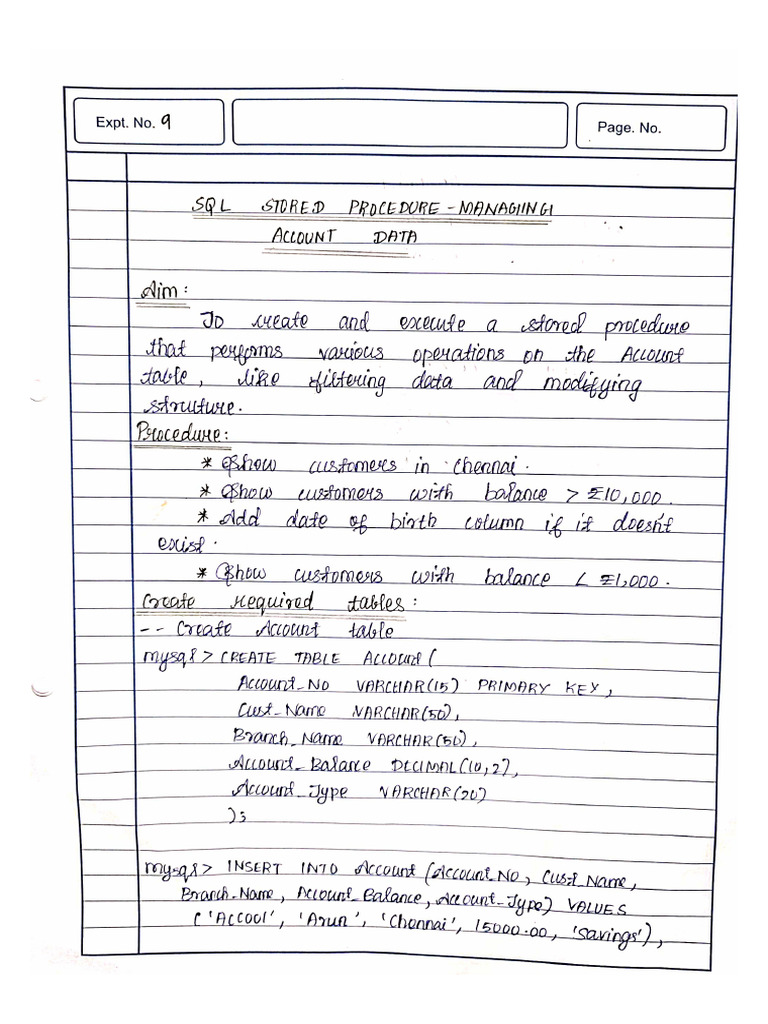 Expt. No. 9
Page. No.
SQL STORED PROCEDURE - MANAGIING
ACCOUNT DATA
Aim:
To create and execute a stored procedure
that performs various operations on the Account
table, like filtering data and modifying
struture.
Procedure:
* Show customers in Chennai.
* Show customers with balance > ₹10,000.
* Add date of birth column if it doesn't
exist.
* Show customers with balance < ₹1,000.
Create required tables:
-- Create Account table
mysql> CREATE TABLE Account(
Account_No VARCHAR(15) PRIMARY KEY,
Cust_Name VARCHAR(50),
Branch_Name VARCHAR(50),
Account_Balance DECIMAL(10,2),
Account_Type VARCHAR(20)
);
mysql> INSERT INTO Account (Account_No, Cust_Name,
Branch_Name, Account_Balance, Account_Type) VALUES
('ACC001', 'Arun', 'Chennai', 15000.00, 'Savings'),